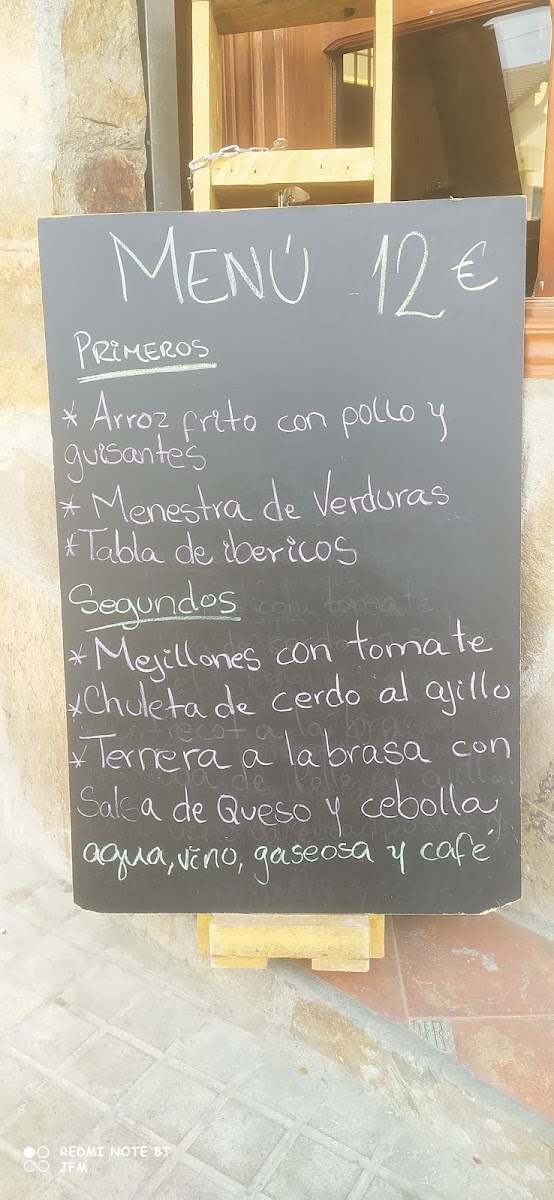 MENÚ 12 €
PRIMEROS
* Arroz frito con pollo y
guisantes
* Menestra de Verduras
* Tabla de ibericos
Segundos
* Mejillones con tomate
* Chuleta de cerdo al ajillo
* Ternera a la brasa con
Salsa de Queso y cebolla
agua, vino, gaseosa y café
REDMI NOTE 8T
JFM